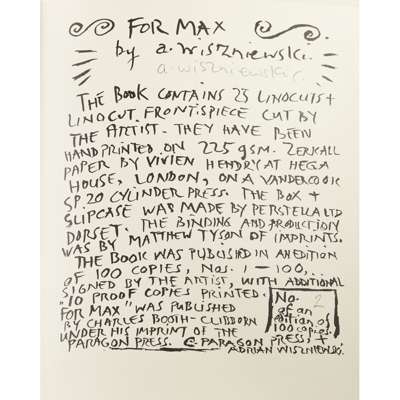 FOR MAX
by a. wiszniewski.
a. wiszniewski
THE BOOK CONTAINS 23 LINOCUTS +
LINOCUT FRONTISPIECE CUT BY
THE ARTIST. THEY HAVE BEEN
HAND PRINTED ON 225 gsm. ZERKALL
PAPER BY VIVIEN HENDRY AT HEGA
HOUSE, LONDON, ON A VANDERCOOK
SP.20 CYLINDER PRESS. THE BOX +
SLIPCASE WAS MADE BY PERSTELLA LTD
DORSET. THE BINDING AND PRODUCTION
WAS BY MATTHEW TYSON OF IMPRINTS.
THE BOOK WAS PUBLISHED IN AN EDITION
OF 100 COPIES, NOS. 1 – 100,
SIGNED BY THE ARTIST, WITH ADDITIONAL
"10 PROOF COPIES PRINTED.
FOR MAX" WAS PUBLISHED
BY CHARLES BOOTH-CLIBBORN
UNDER HIS IMPRINT OF THE
PARAGON PRESS. © PARAGON PRESS +
ADRIAN WISZNIEWSKI.
No. 2
of an
edition of
100 copies.